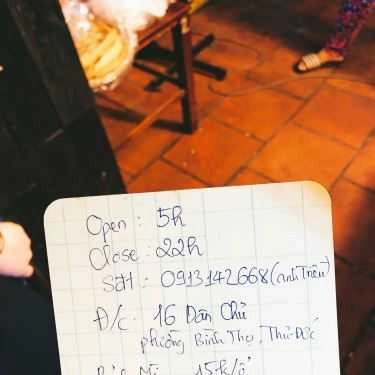 Open : 5h
Close : 22h
Sđt : 0913142668 (anh Triều)
Đ/c : 16 Dân Chủ
phường Bình Thọ, Thủ Đức
15k/ổ